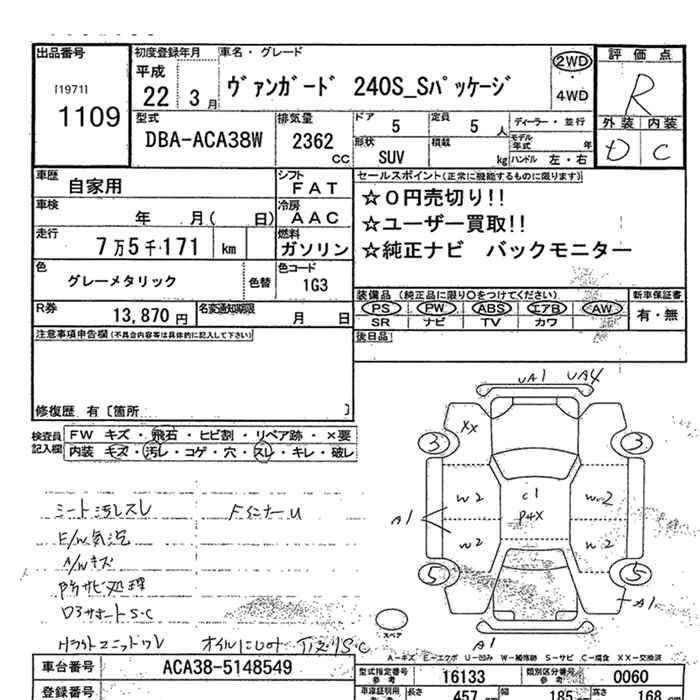 出品番号
[1971]
1109
初度登録年月
平成
22 3月
車名・グレード
ヴァンガード 240S_Sパッケージ
2WD
4WD
評価点
R
外装 内装
D C
型式
DBA-ACA38W
排気量
2362
CC
ドア
5
定員
5 人
ディーラー・並行
形状
SUV
積載
kg
モデル年式 年
ハンドル 左・右
車歴
自家用
シフト
FAT
車検
年 月( 日)
冷房
AAC
走行
7万5千171 km
燃料
ガソリン
色
グレーメタリック
色替
色コード
1G3
R券
13,870 円
名変通知期限
月 日
セールスポイント(正常に機能するものに限ります)
☆0円売切り!!
☆ユーザー買取!!
☆純正ナビ バックモニター
装備品 (純正品に限り○をつけてください)
PS PW ABS エアB AW
SR ナビ TV カワ
新車保証書
有・無
後日品
注意事項申告欄(不具合内容等は具体的に記入して下さい)
修復歴 有〔箇所 〕
検査員記入欄
FW キズ・飛石・ヒビ割・リペア跡・×要
内装 キズ・汚レ・コゲ・穴・スレ・キレ・破レ
シート汚レスレ
FインナーU
E/W気泡
A/Wキズ
防サビ処理
ロアサポートS・C
UA1 UA4
XX
3 3
W2 C1 W2
A1 P4X
W2 W2
5 5
A1
A1
スペア
A-キズ E-エクボ U-凹み W-補修跡 S-サビ C-腐食 XX-交換済
車台番号
ACA38-5148549
型式指定番号
参考
16133
類別区分番号
参考
0060
登録番号
長さ 457 cm 幅 185 cm 高 168 cm